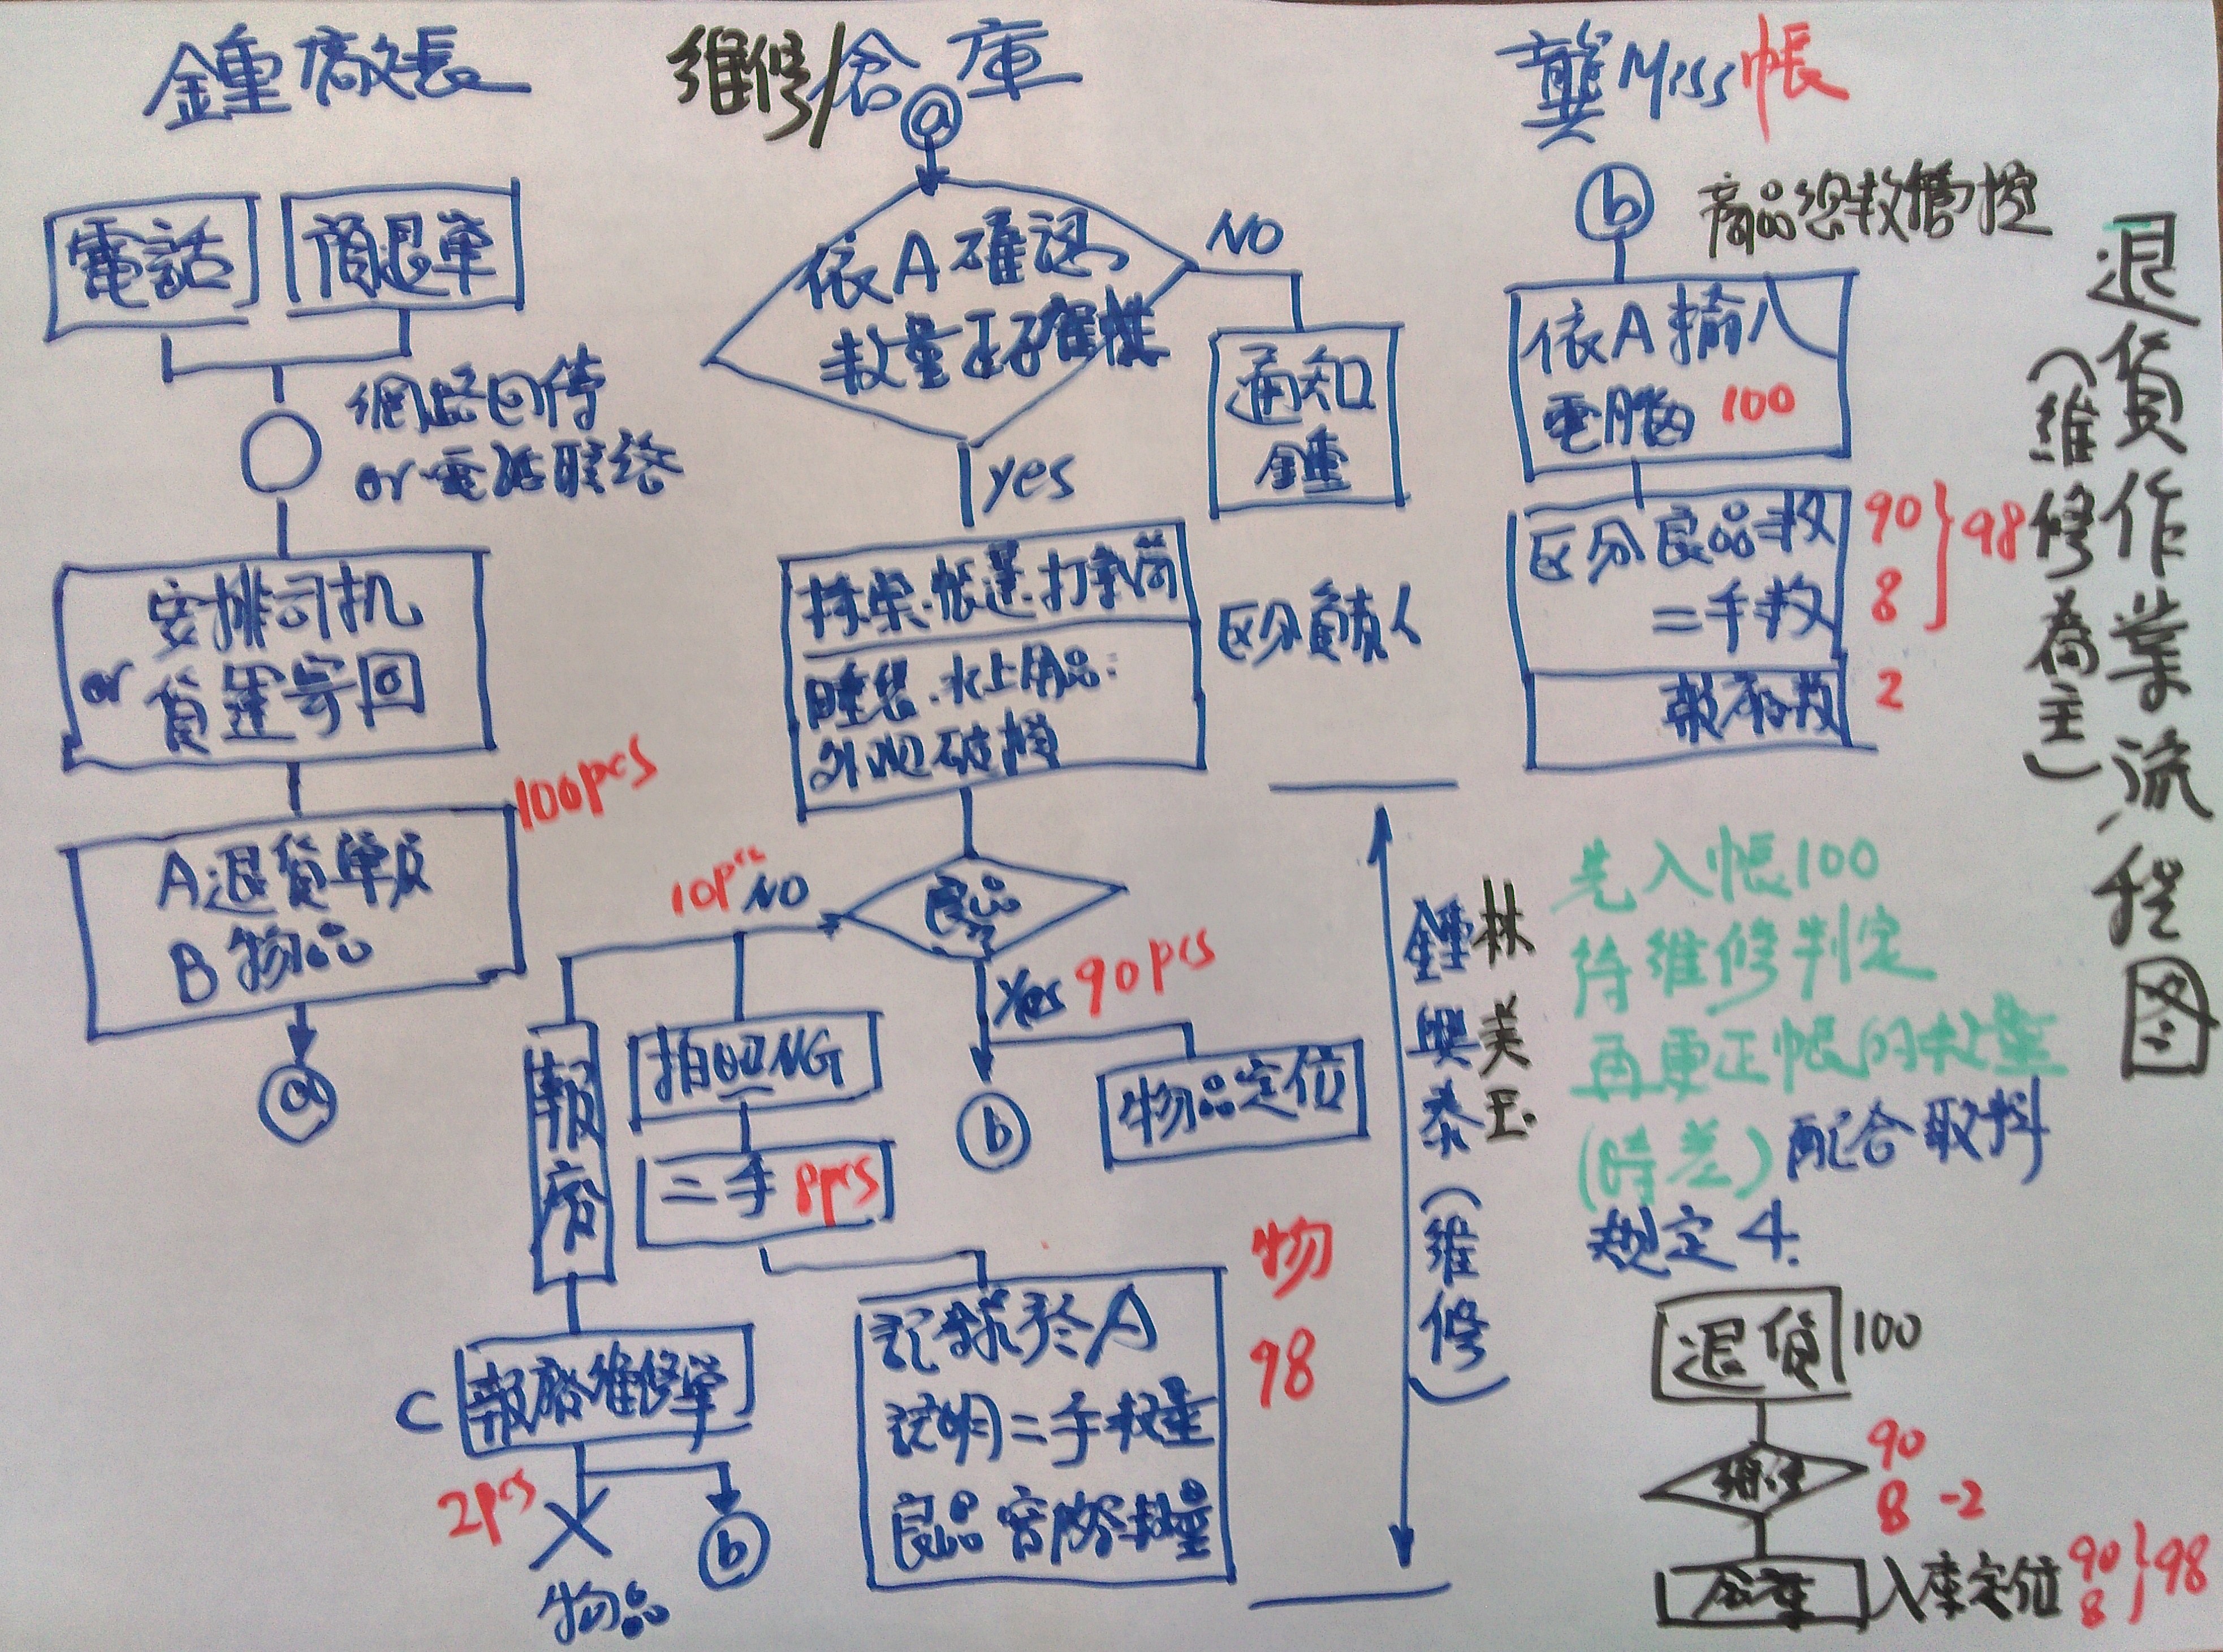 鍾廠長
電話
預退單
網路回傳
or 電話聯絡
安排司机
or 貨運寄回
100pcs
A 退貨單及
B 物品
a
維修/倉庫
a
依A確認
數量正確性
NO
通知
鍾
yes
床架.帳蓬.打氣筒
睡袋.水上用品:
外观破損
区分負責人
良品
10pcs NO
yes 90pcs
報廢
拍照NG
二手 8pcs
b
物品定位
C 報廢維修單
2pcs
物品
b
記錄於A
說明二手數量
良品 報廢數量
物
98
鍾興泰(維修)
林美玉
龔Miss帳
b
商品總数管控
依A輸入
電腦 100
区分良品数
二手数
報廢数
90
8
98
2
先入帳100
待維修判定
再更正帳的数量
(時差) 配合取料
規定4.
退貨 100
維修
90
8 -2
倉庫 入庫定位 90
8
98
退貨作業流程图
(維修為主)